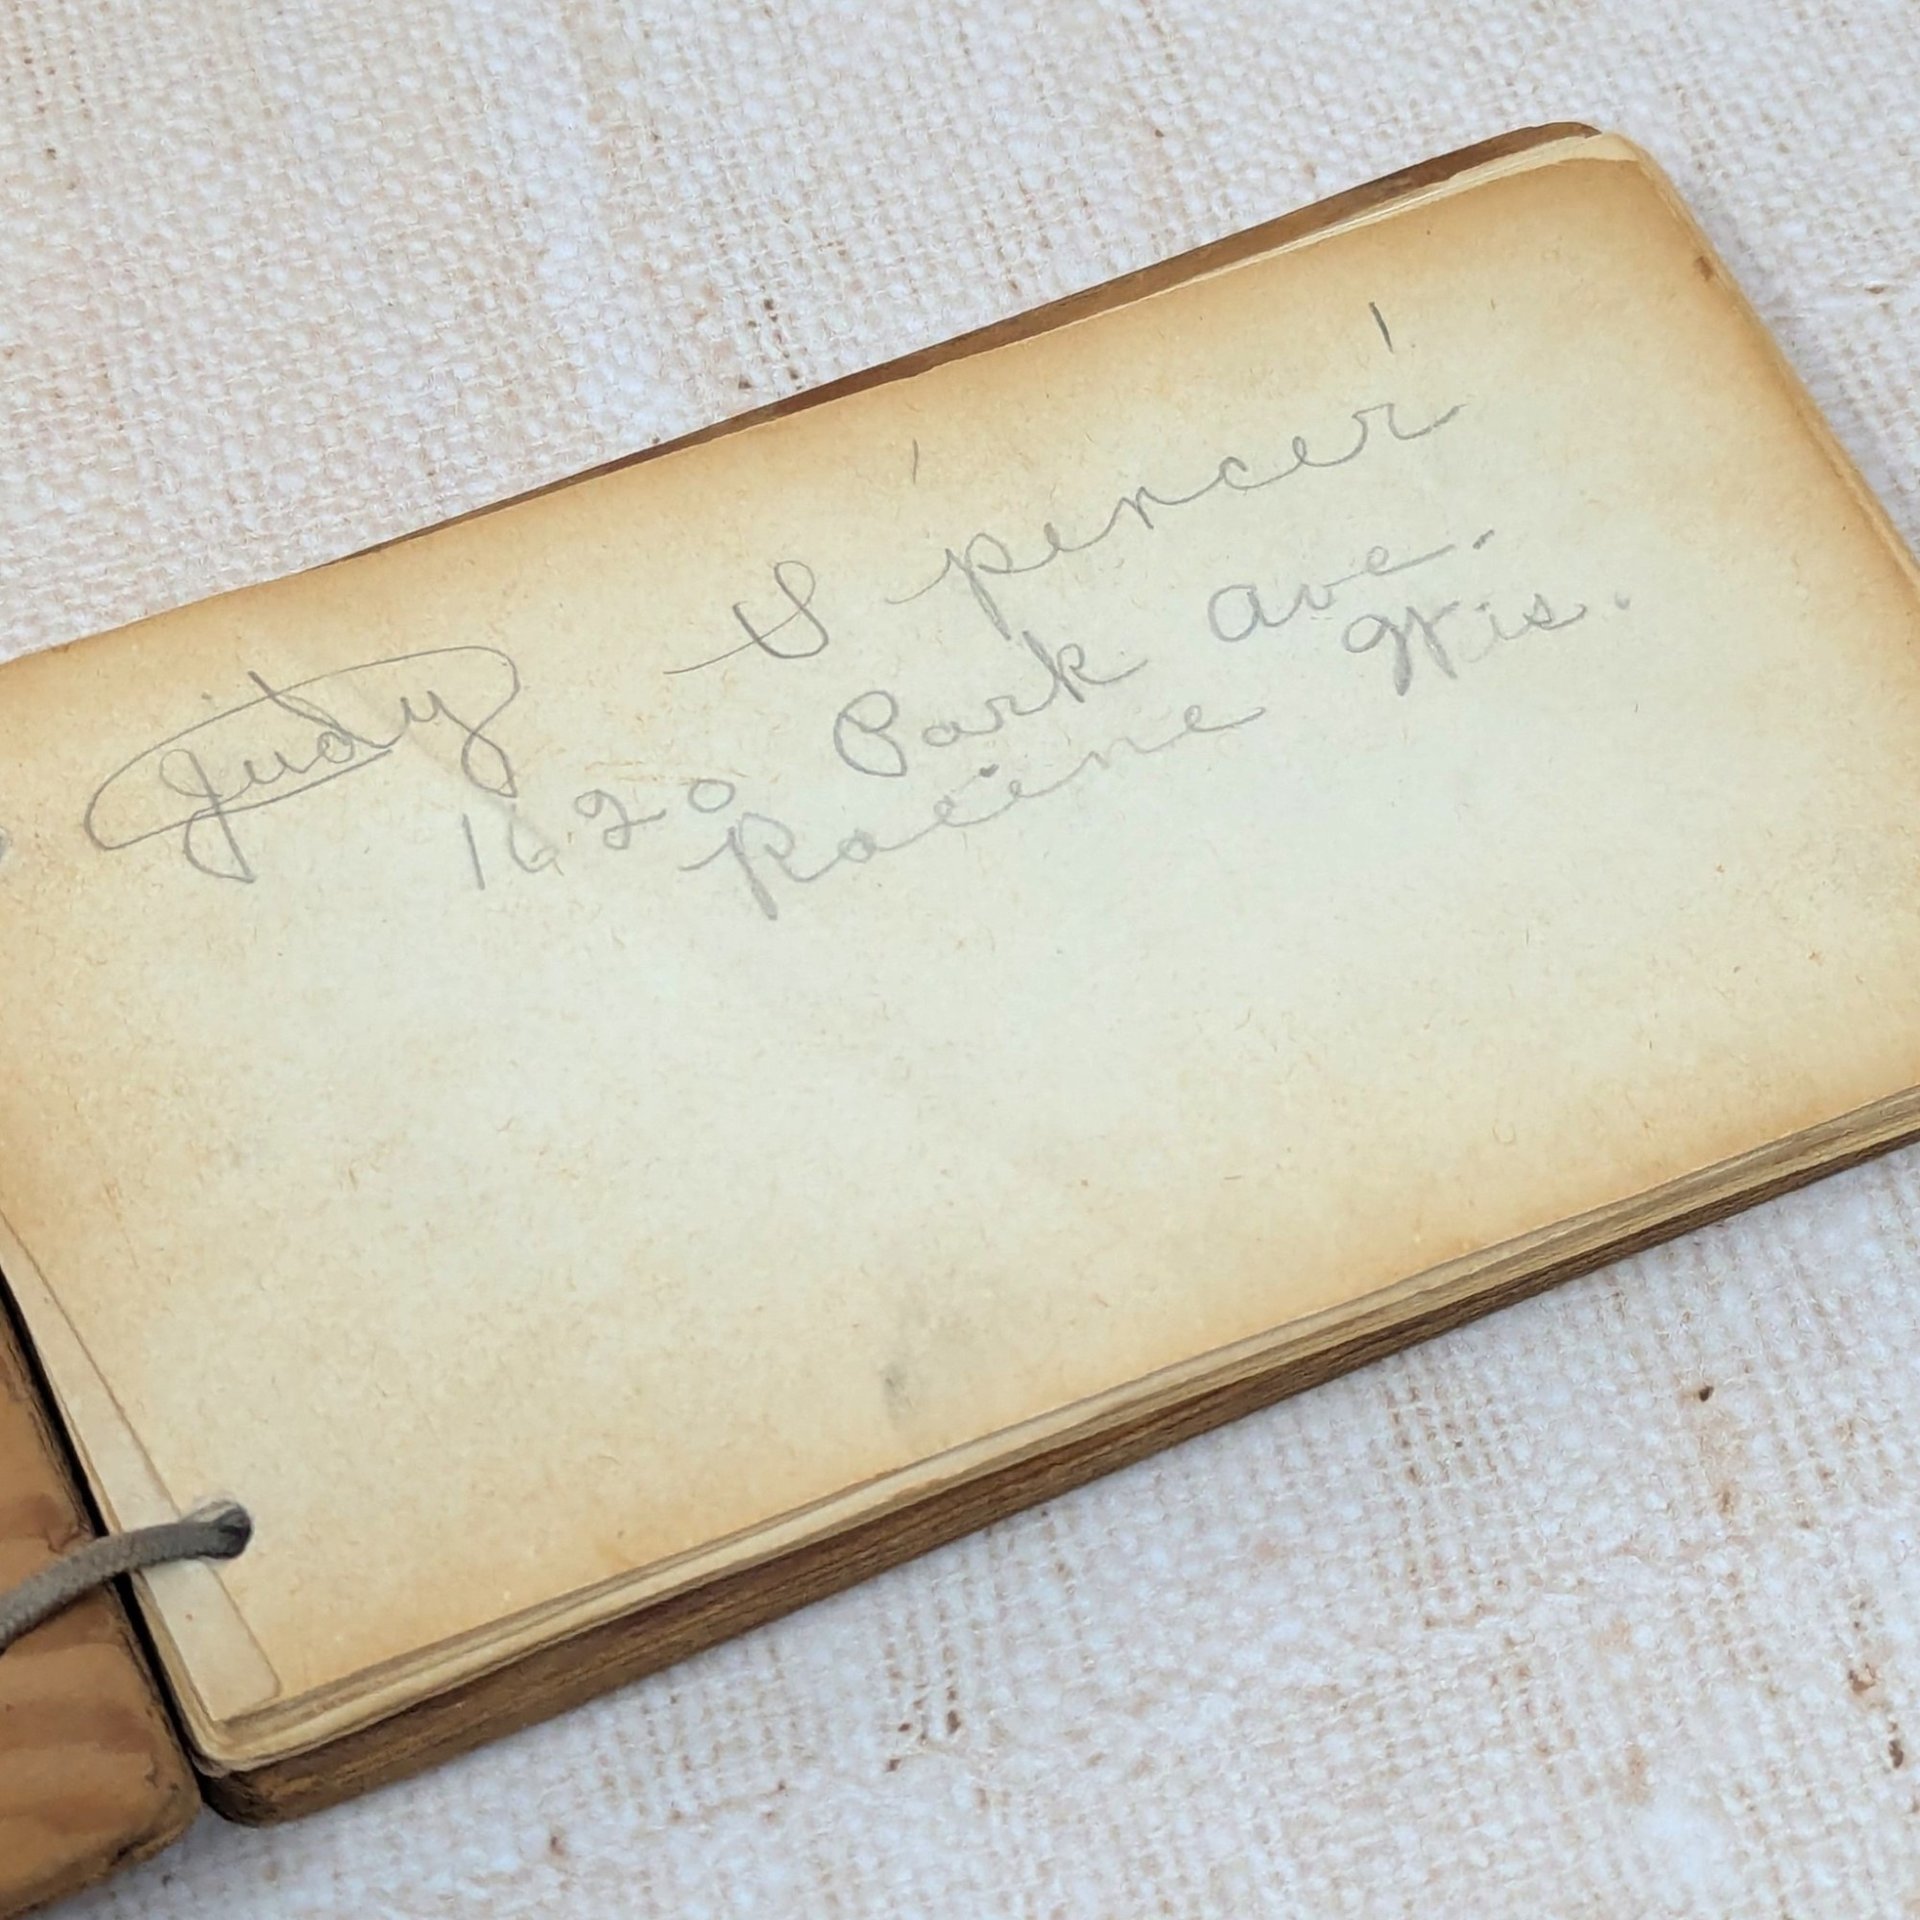 Judy Spencer
1620 Park Ave.
Racine Wis.